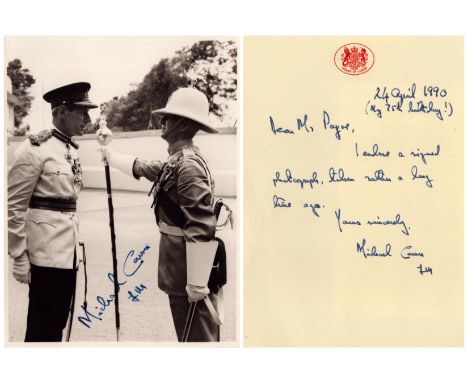 Michael Carver
FM
HOUSE OF LORDS
24 April 1990
(My 75th birthday!)
Dear Mr Payne,
I enclose a signed
photograph, taken rather a long
time ago.
Yours sincerely,
Michael Carver
FM